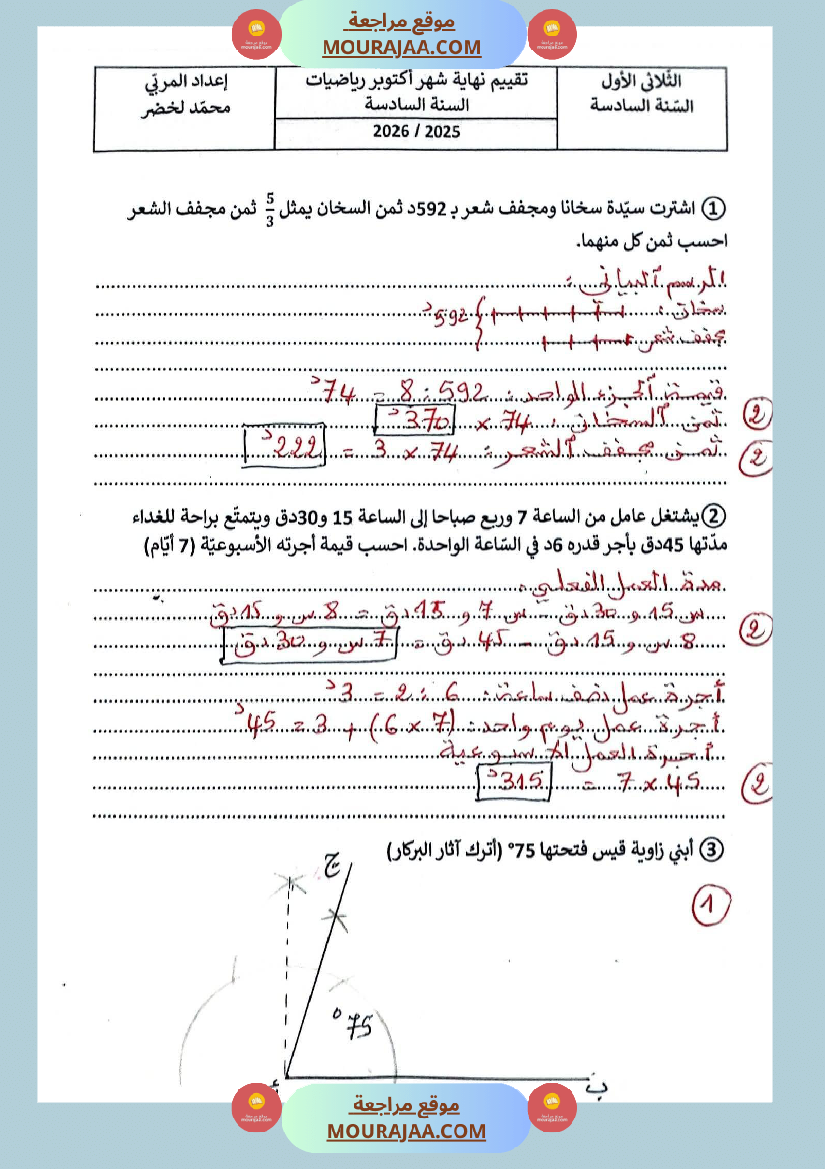 موقع مراجعة
MOURAJAA.COM
الثّلاثي الأول
السّنة السادسة
تقييم نهاية شهر أكتوبر رياضيات
السنة السادسة
2026 / 2025
إعداد المربّي
محمّد لخضر
① اشترت سيّدة سخانا ومجفف شعر بـ 592د ثمن السخان يمثل 5/3 ثمن مجفف الشعر
احسب ثمن كل منهما.
الرسم البياني :
سخان : 592د
مجفف شعر
قيمة الجزء الواحد : 592 : 8 = 74د
ثمن السخان : 74 × 370د
ثمن مجفف الشعر : 74 × 3 = 222د
2
2
② يشتغل عامل من الساعة 7 وربع صباحا إلى الساعة 15 و30دق ويتمتّع براحة للغداء
مدّتها 45دق بأجر قدره 6د في السّاعة الواحدة. احسب قيمة أجرته الأسبوعيّة (7 أيّام)
مدة العمل الفعلي :
س 15 و 30 دق - س 7 و 15 دق = 8 س و 15 دق
8 س و 15 دق - 45 دق = 7 س و 30 دق
2
أجرة عمل نصف ساعة : 6 : 2 = 3د
أجرة عمل يوم واحد : (7 × 6) + 3 = 45د
أجرة العمل الأسبوعية
45 × 7 = 315د
2
③ أبني زاوية قيس فتحتها 75° (أترك آثار البركار)
1
ج
75°
ب
أ
موقع مراجعة
MOURAJAA.COM